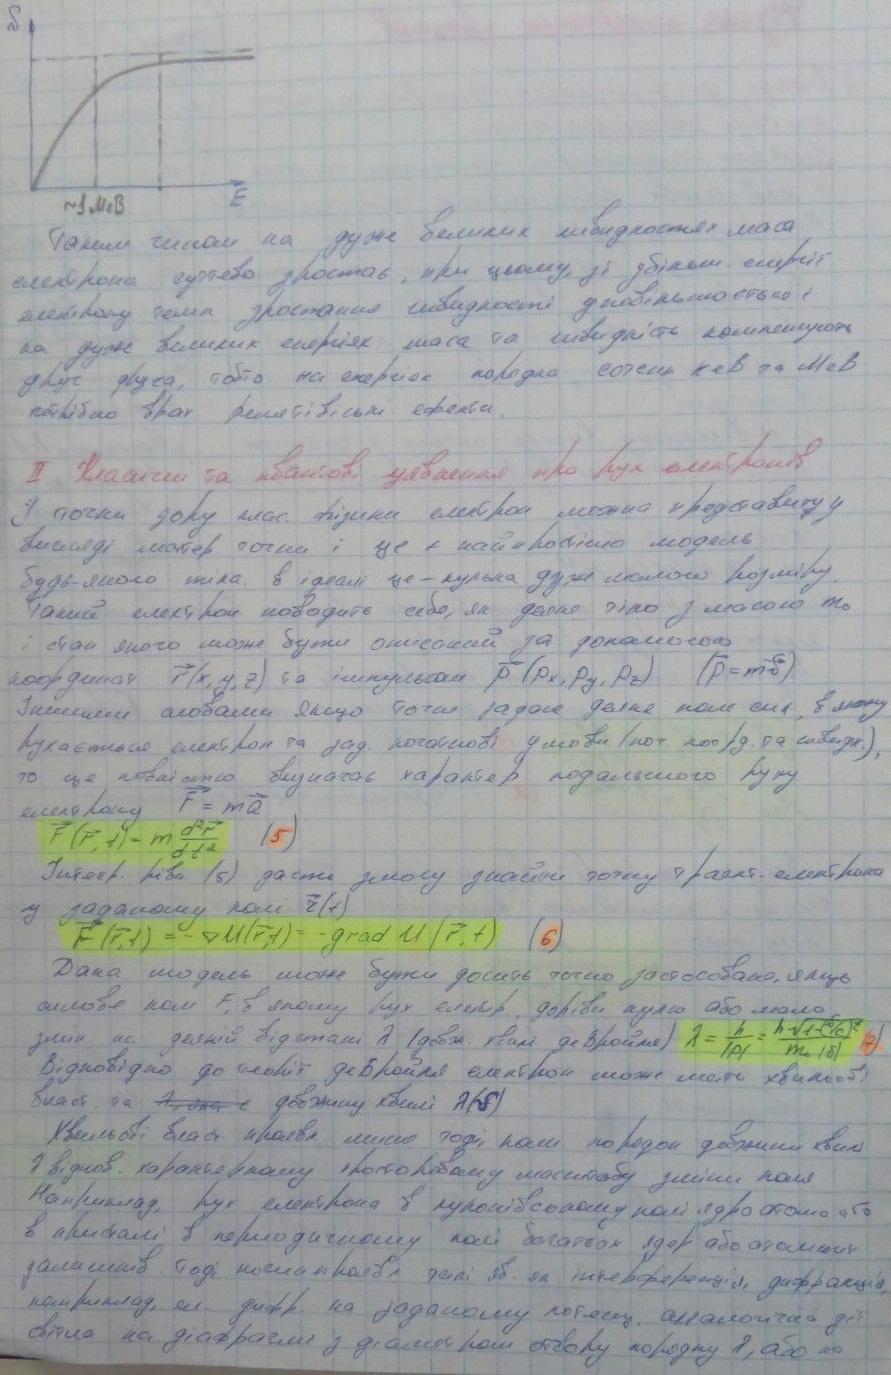 ~1 МеВ
E
Таким чином на дуже великих швидкостях маса
електрона суттєво зростає, при цьому, зі збільш. енергії
електрону темп зростання швидкості
на дуже великих енергіях маса та швидкість компенсують
друг друга, тобто на енергіях порядка сотень кеВ та МеВ
потрібно врах ефекти.
II Класичні та квантові уявлення про рух електронів
З точки зору клас. фізики електрон можна представити у
вигляді матер точки і це є найпростіша модель
будь-якого тіла. в ідеалі це – кулька дуже малого розміру.
Такий електрон поводить себе, як деяке тіло з масою m₀
і стан якого може бути описаний за допомогою
координат r⃗(x, y, z) та імпульсом p⃗ (pₓ, pᵧ, p_z) (p⃗ = mv⃗)
Іншими словами якщо точно задане деяке поле сил, в якому
рухається електрон та зад. початкові умови (поч. коорд. та швидк.),
то це повністю визначає характер подальшого руху
електрону F⃗ = ma⃗
F⃗(r⃗, t) = m d²r⃗/dt² (5)
Інтегр. рівн. (5) дасть змогу знайти точну траєкт. електрона
у заданому полі r⃗(t)
F⃗(r⃗,t) = -∇U(r⃗,t) = -grad U(r⃗, t) (6)
Дана модель може бути досить точно застосована, якщо
силове поле F, в якому рух електр. дорівн нулю або мало
змін. на деякій відстані λ (довж. хвилі деБройля) λ = h/|p| = h√1-(v/c)²/m₀|v| (7)
Відповідно до деБройля електрон може мать хвильові
власт. та довжину хвилі λ(v)
Хвильові власт. проявл лише тоді, коли порядок довжини хвилі
λ відпов. характерному просторовому масштабу зміни поля
Наприклад, рух електрона в кулонівському полі ядра атома або
в кристалі в периодичному полі багатьох ядер або атомних
залишків. Тоді проявл такі яв. як інтерференція, дифракція,
наприклад, ел. дифр. на заданому потенц. аналогічна дії
світла на діафрагмі з діаметром отвору порядку λ, або на